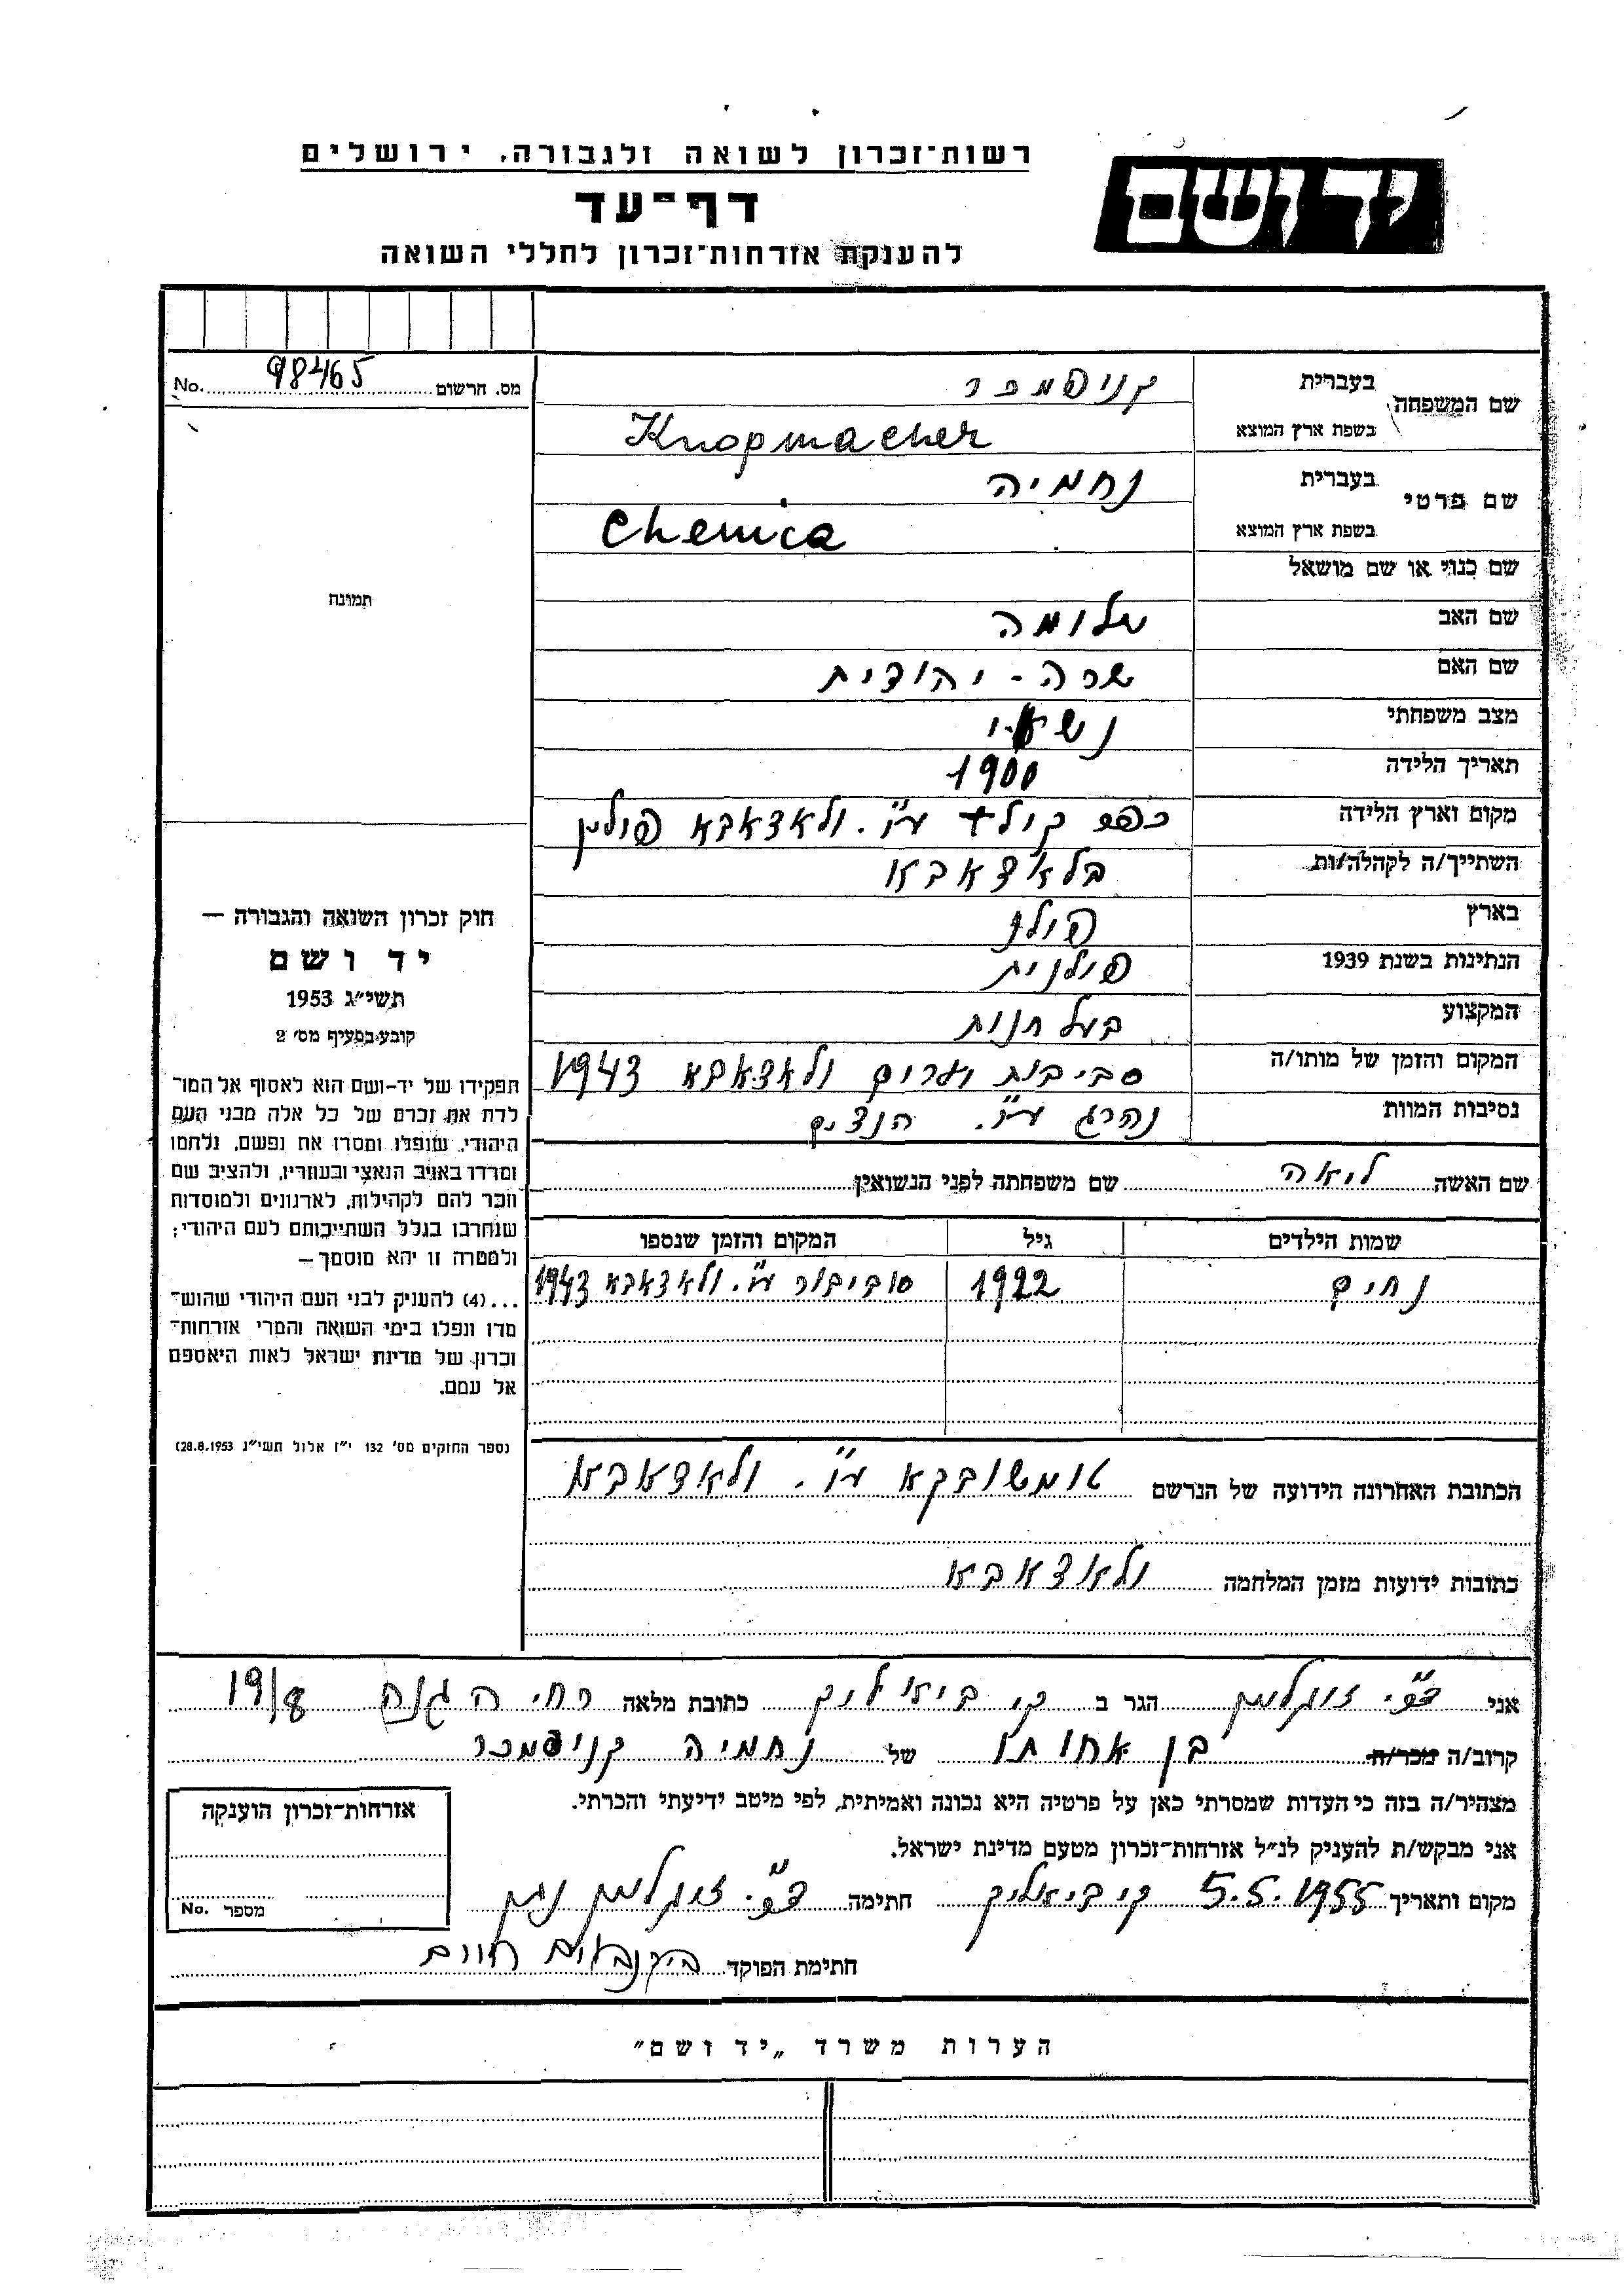 רשות־זכרון לשואה ולגבורה, ירושלים
יד ושם
דף־עד
להענקת אזרחות־זכרון לחללי השואה
מס. הרשום 98465 No.
שם המשפחה
בעברית קניפמכר
בשפת ארץ המוצא Knopmacher
שם פרטי
בעברית נחמיה
בשפת ארץ המוצא Chemia
שם כנוי או שם מושאל
שם האב שלומה
שם האם שרה - יהודית
מצב משפחתי נשוי
תאריך הלידה 1900
מקום וארץ הלידה כפר ע״י. ולאדאבא פולין
השתייך/ה לקהלה/ות ולאדאבא
בארץ פולן
הנתינות בשנת 1939 פולנית
המקצוע בעל חנות
המקום והזמן של מותו/ה סביבות ולאדאבא 1943
נסיבות המוות נהרג ע״י. הנצים
שם האשה לואה שם משפחתה לפני הנשואין
שמות הילדים גיל המקום והזמן שנספו
נחים 1922 סוביבור ע״י. ולאדאבא 1943
הכתובת האחרונה הידועה של הנרשם טומשובקא ע״י. ולאדאבא
כתובות ידועות מזמן המלחמה ולאדאבא
תמונה
חוק זכרון השואה והגבורה —
יד ושם
תשי״ג 1953
קובע בסעיף מס׳ 2
תפקידו של יד-ושם הוא לאסוף אל המו־
לדת את זכרם של כל אלה מבני העם
היהודי, שנפלו ומסרו את נפשם, נלחמו
ומרדו באויב הנאצי ובעוזריו, ולהציב שם
וזכר להם לקהילות, לארגונים ולמוסדות
שנחרבו בגלל השתייכותם לעם היהודי;
ולמטרה זו יהא מוסמך —
...(4) להעניק לבני העם היהודי שהוש־
מדו ונפלו בימי השואה והמרי אזרחות־
זכרון של מדינת ישראל לאות היאספם
אל עמם.
(ספר החוקים מס׳ 132 י״ז אלול תשי״ג 28.8.1953)
אני זוגלמן הגר ב ק. ביאליק כתובת מלאה רח׳ הגנה 19/8
קרוב/ה מכר/ה בן אחותו של נחמיה קניפמכר
מצהיר/ה בזה כי העדות שמסרתי כאן על פרטיה היא נכונה ואמיתית, לפי מיטב ידיעתי והכרתי.
אני מבקש/ת להעניק לנ״ל אזרחות־זכרון מטעם מדינת ישראל.
מקום ותאריך 5.5.1955 ק. ביאליק חתימה זוגלמן
חתימת הפוקד חיים
אזרחות־זכרון הוענקה
מספר No.
הערות משרד „יד ושם״